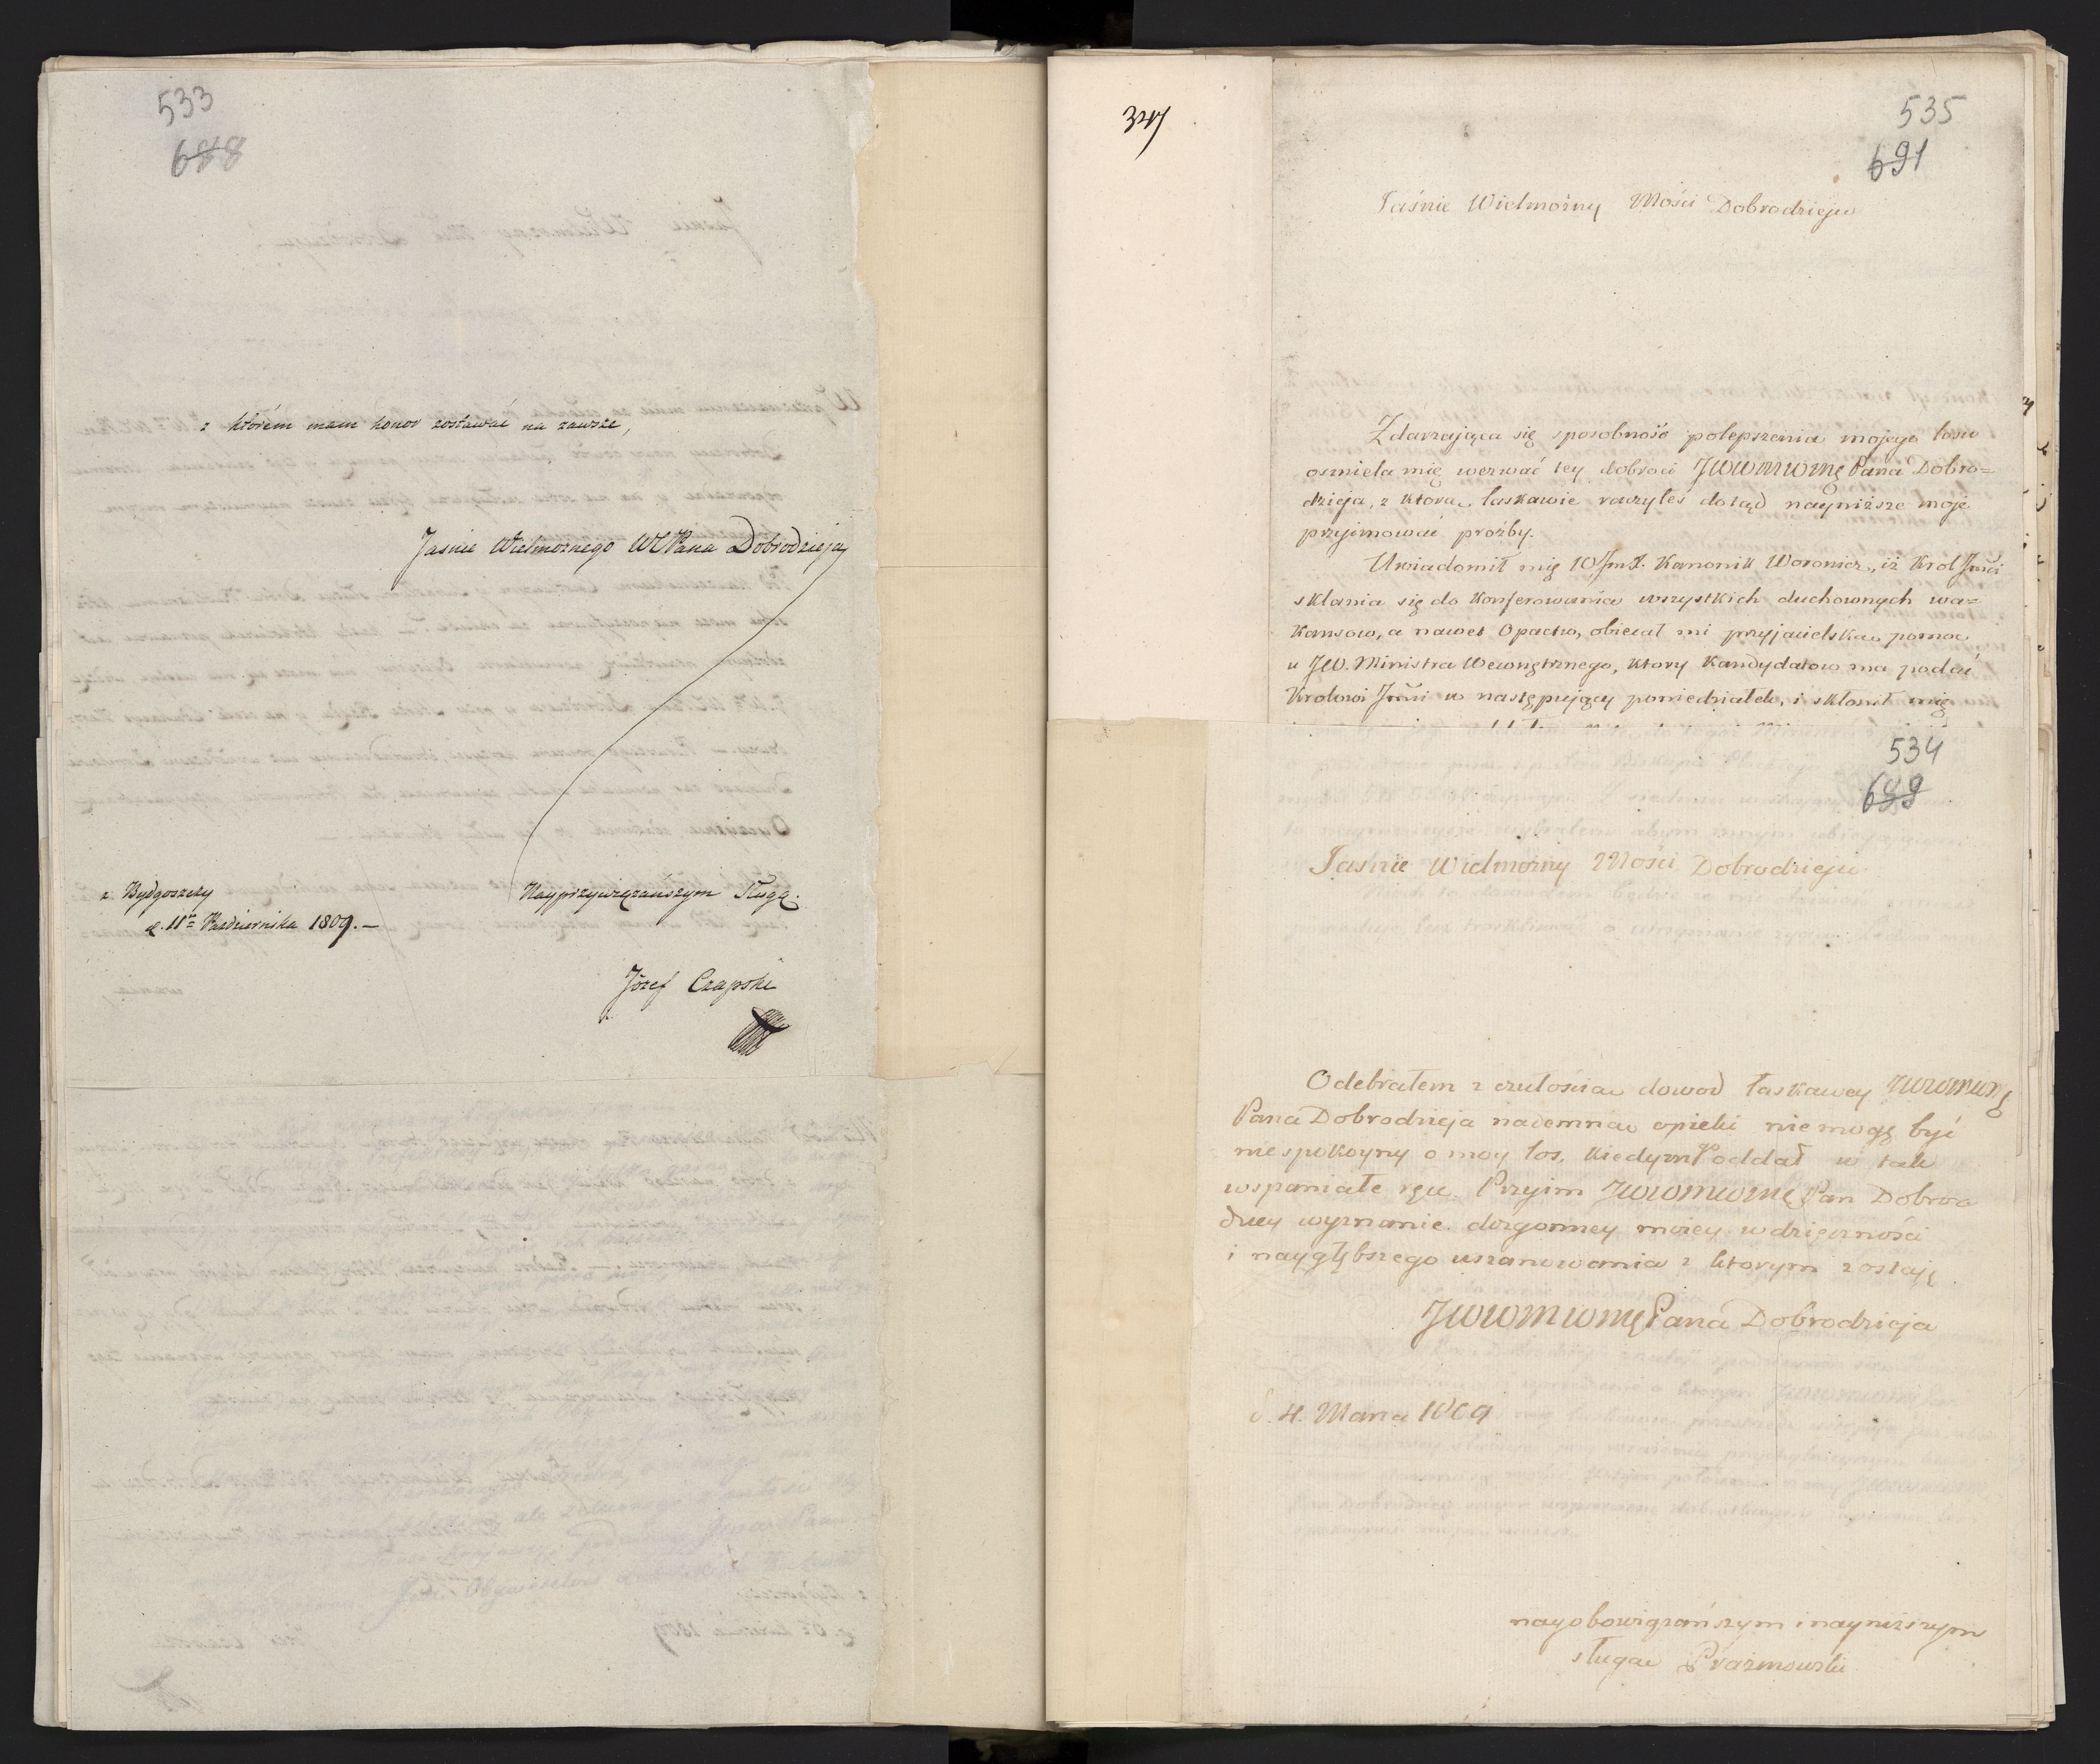 533
688
z którém mam honor zostawać na zawsze,
Jasnie Wielmożnego WPana Dobrodzieja
z Bydgoszczy
d. 11go Października 1809. —
Nayprzywiązańszym Sługą.
Józef Czapski
347
535
691
Jaśnie Wielmożny Mości Dobrodzieju
Zdarzająca się sposobność polepszenia mojego losu
osmiela mię wezwać tey dobroci JWWMWMę Pana Dobro=
dzieja, z ktorą łaskawie raczyłeś dotąd nayniższe moje
przyimować prozby.
Uwiadomił mię WJmX. Kanonik Woronicz, iż Krol Jmći
sklania się do konferowania wszystkich duchownych wa=
kansow, a nawet Opactw, obiecał mi przyjacielską pomoc
u JW. Ministra Wewnętrznego, ktory kandydatow ma podać
Krolowi Jmći w następujący poniedziałek, i skłonił mię
534
689
Jasnie Wielmożny Mości Dobrodzieju
Odebrałem z czułością dowod łaskawey JWWMWMę
Pana Dobrodzieja nademną opieki nie mogę być
niespokoyny o moy los, kiedym go oddał w tak
wspaniałe ręce. Przyim JWWMWMę Pan Dobro
dziey wyznanie dozgonney moiey wdzięczności
i naygłębszego uszanowania z ktorym zostaję
JWWMWMę Pana Dobrodzieja
d. 4. Marca 1809
nayobowiązańszym i nayniższym
sługą Prażmowski